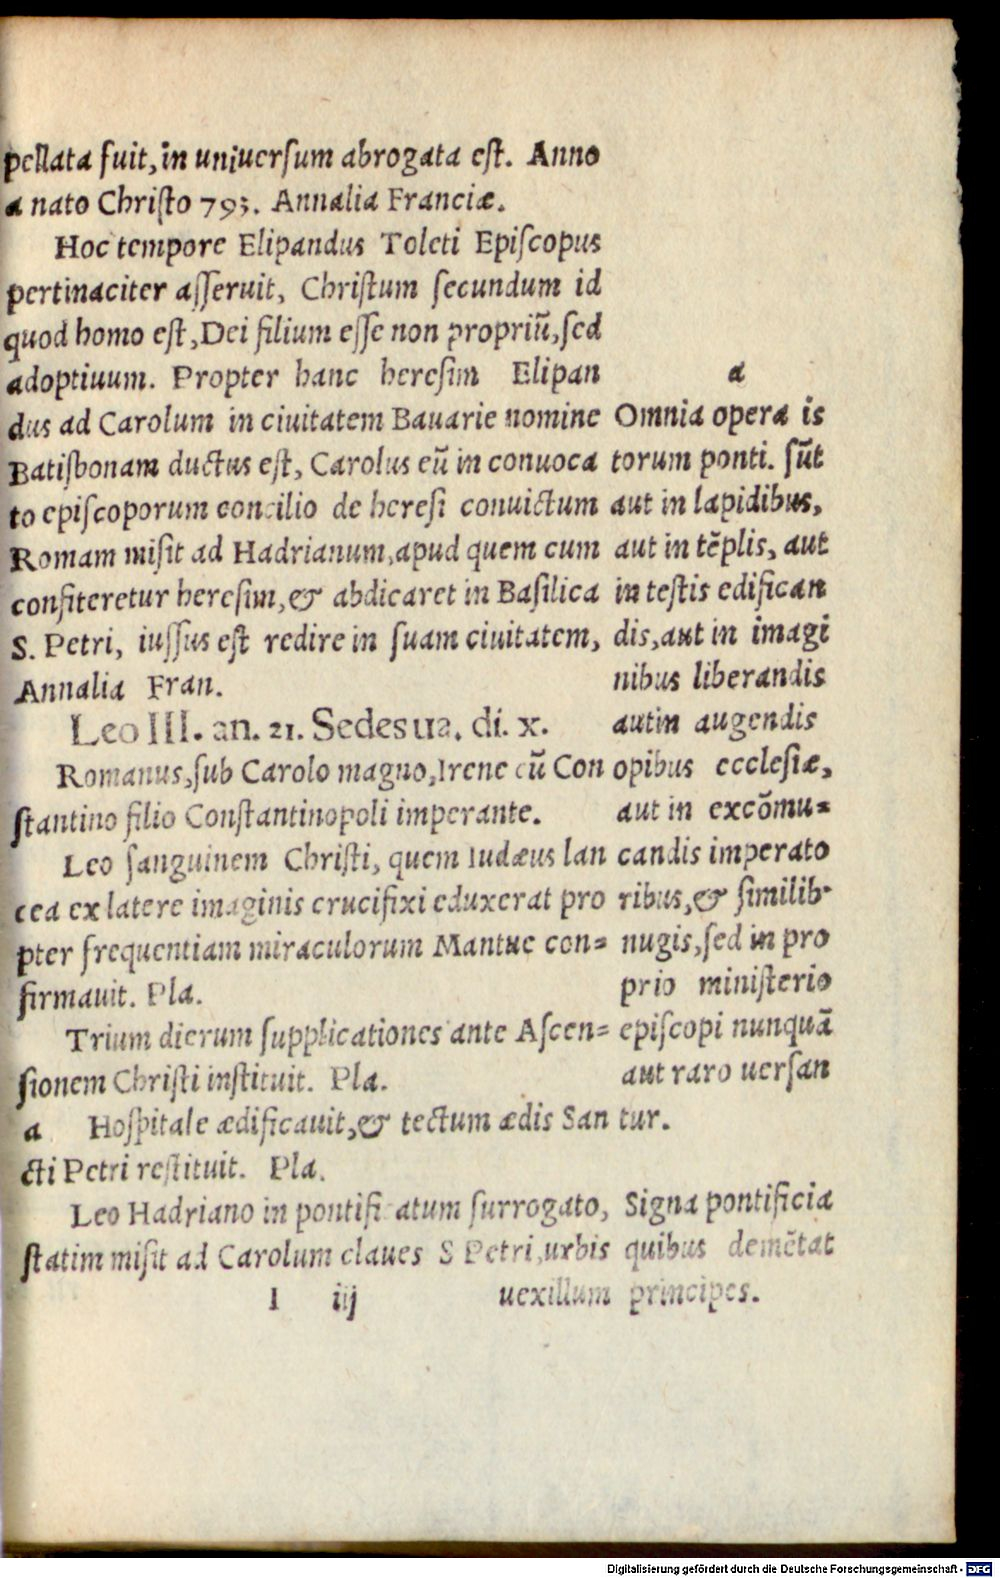 pellata fuit, in uniuersum abrogata est. Anno
a nato Christo 793. Annalia Franciæ.
Hoc tempore Elipandus Toleti Episcopus
pertinaciter asseruit, Christum secundum id
quod homo est, Dei filium esse non propriũ, sed
adoptiuum. Propter hanc heresim Elipan
dus ad Carolum in ciuitatem Bauarie nomine
Batisbonam ductus est, Carolus eũ in conuoca
to episcoporum concilio de heresi conuictum
Romam misit ad Hadrianum, apud quem cum
confiteretur heresim, & abdicaret in Basilica
S. Petri, iussus est redire in suam ciuitatem,
Annalia Fran.
Leo III. an. 21. Sedes ua. di. x.
Romanus, sub Carolo magno, Irene cũ Con
stantino filio Constantinopoli imperante.
Leo sanguinem Christi, quem Iudæus lan
cea ex latere imaginis crucifixi eduxerat pro
pter frequentiam miraculorum Mantue con=
firmauit. Pla.
Trium dierum supplicationes ante Ascen=
sionem Christi instituit. Pla.
a Hospitale ædificauit, & tectum ædis San
cti Petri restituit. Pla.
Leo Hadriano in pontificatum surrogato,
statim misit ad Carolum claues S Petri, urbis
I iij uexillum
a
Omnia opera is
torum ponti. sũt
aut in lapidibus,
aut in tẽplis, aut
in testis edifican
dis, aut in imagi
nibus liberandis
autin augendis
opibus ecclesiæ,
aut in excõmu=
candis imperato
ribus, & similib.
nugis, sed in pro
prio ministerio
episcopi nunquã
aut raro uersan
tur.
Signa pontificia
quibus demẽtat
principes.
Digitalisierung gefördert durch die Deutsche Forschungsgemeinschaft - DFG